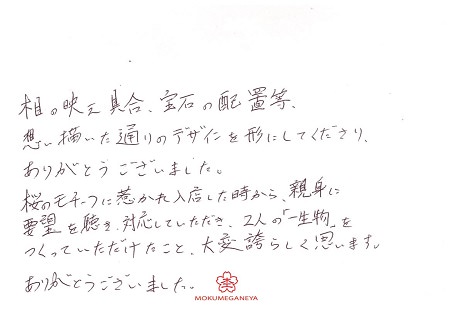 相の映え具合、宝石の配置等、
想い描いた通りのデザインを形にしてくださり、
ありがとうございました。
桜のモチーフに惹かれ入店した時から、親身に
要望を聴き、対応していただき、2人の「一生物」を
つくっていただけたこと、大変誇らしく思います。
ありがとうございました。
MOKUMEGANEYA